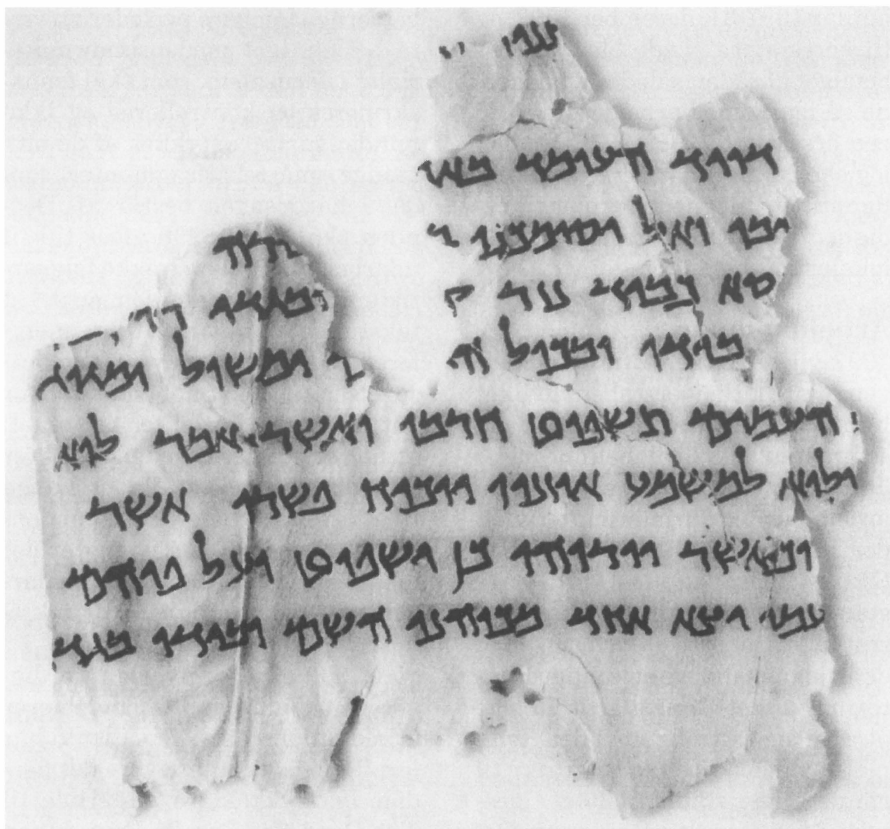 דויד העומד באח
יבו ואל יסומכנו ב תורה
סא כבוד נזר ק ובגדי
בידו ובכול הג ם ימשול ומגוג
העמים תשפוט חרבו ואשר אמר לוא
ולוא למשמע אוזניו יוכיח פשרו אשר
וכאשר יורוהו כן ישפוט ועל פיהם
עמו יצא אחד מכוהני השם ובידו בגדי